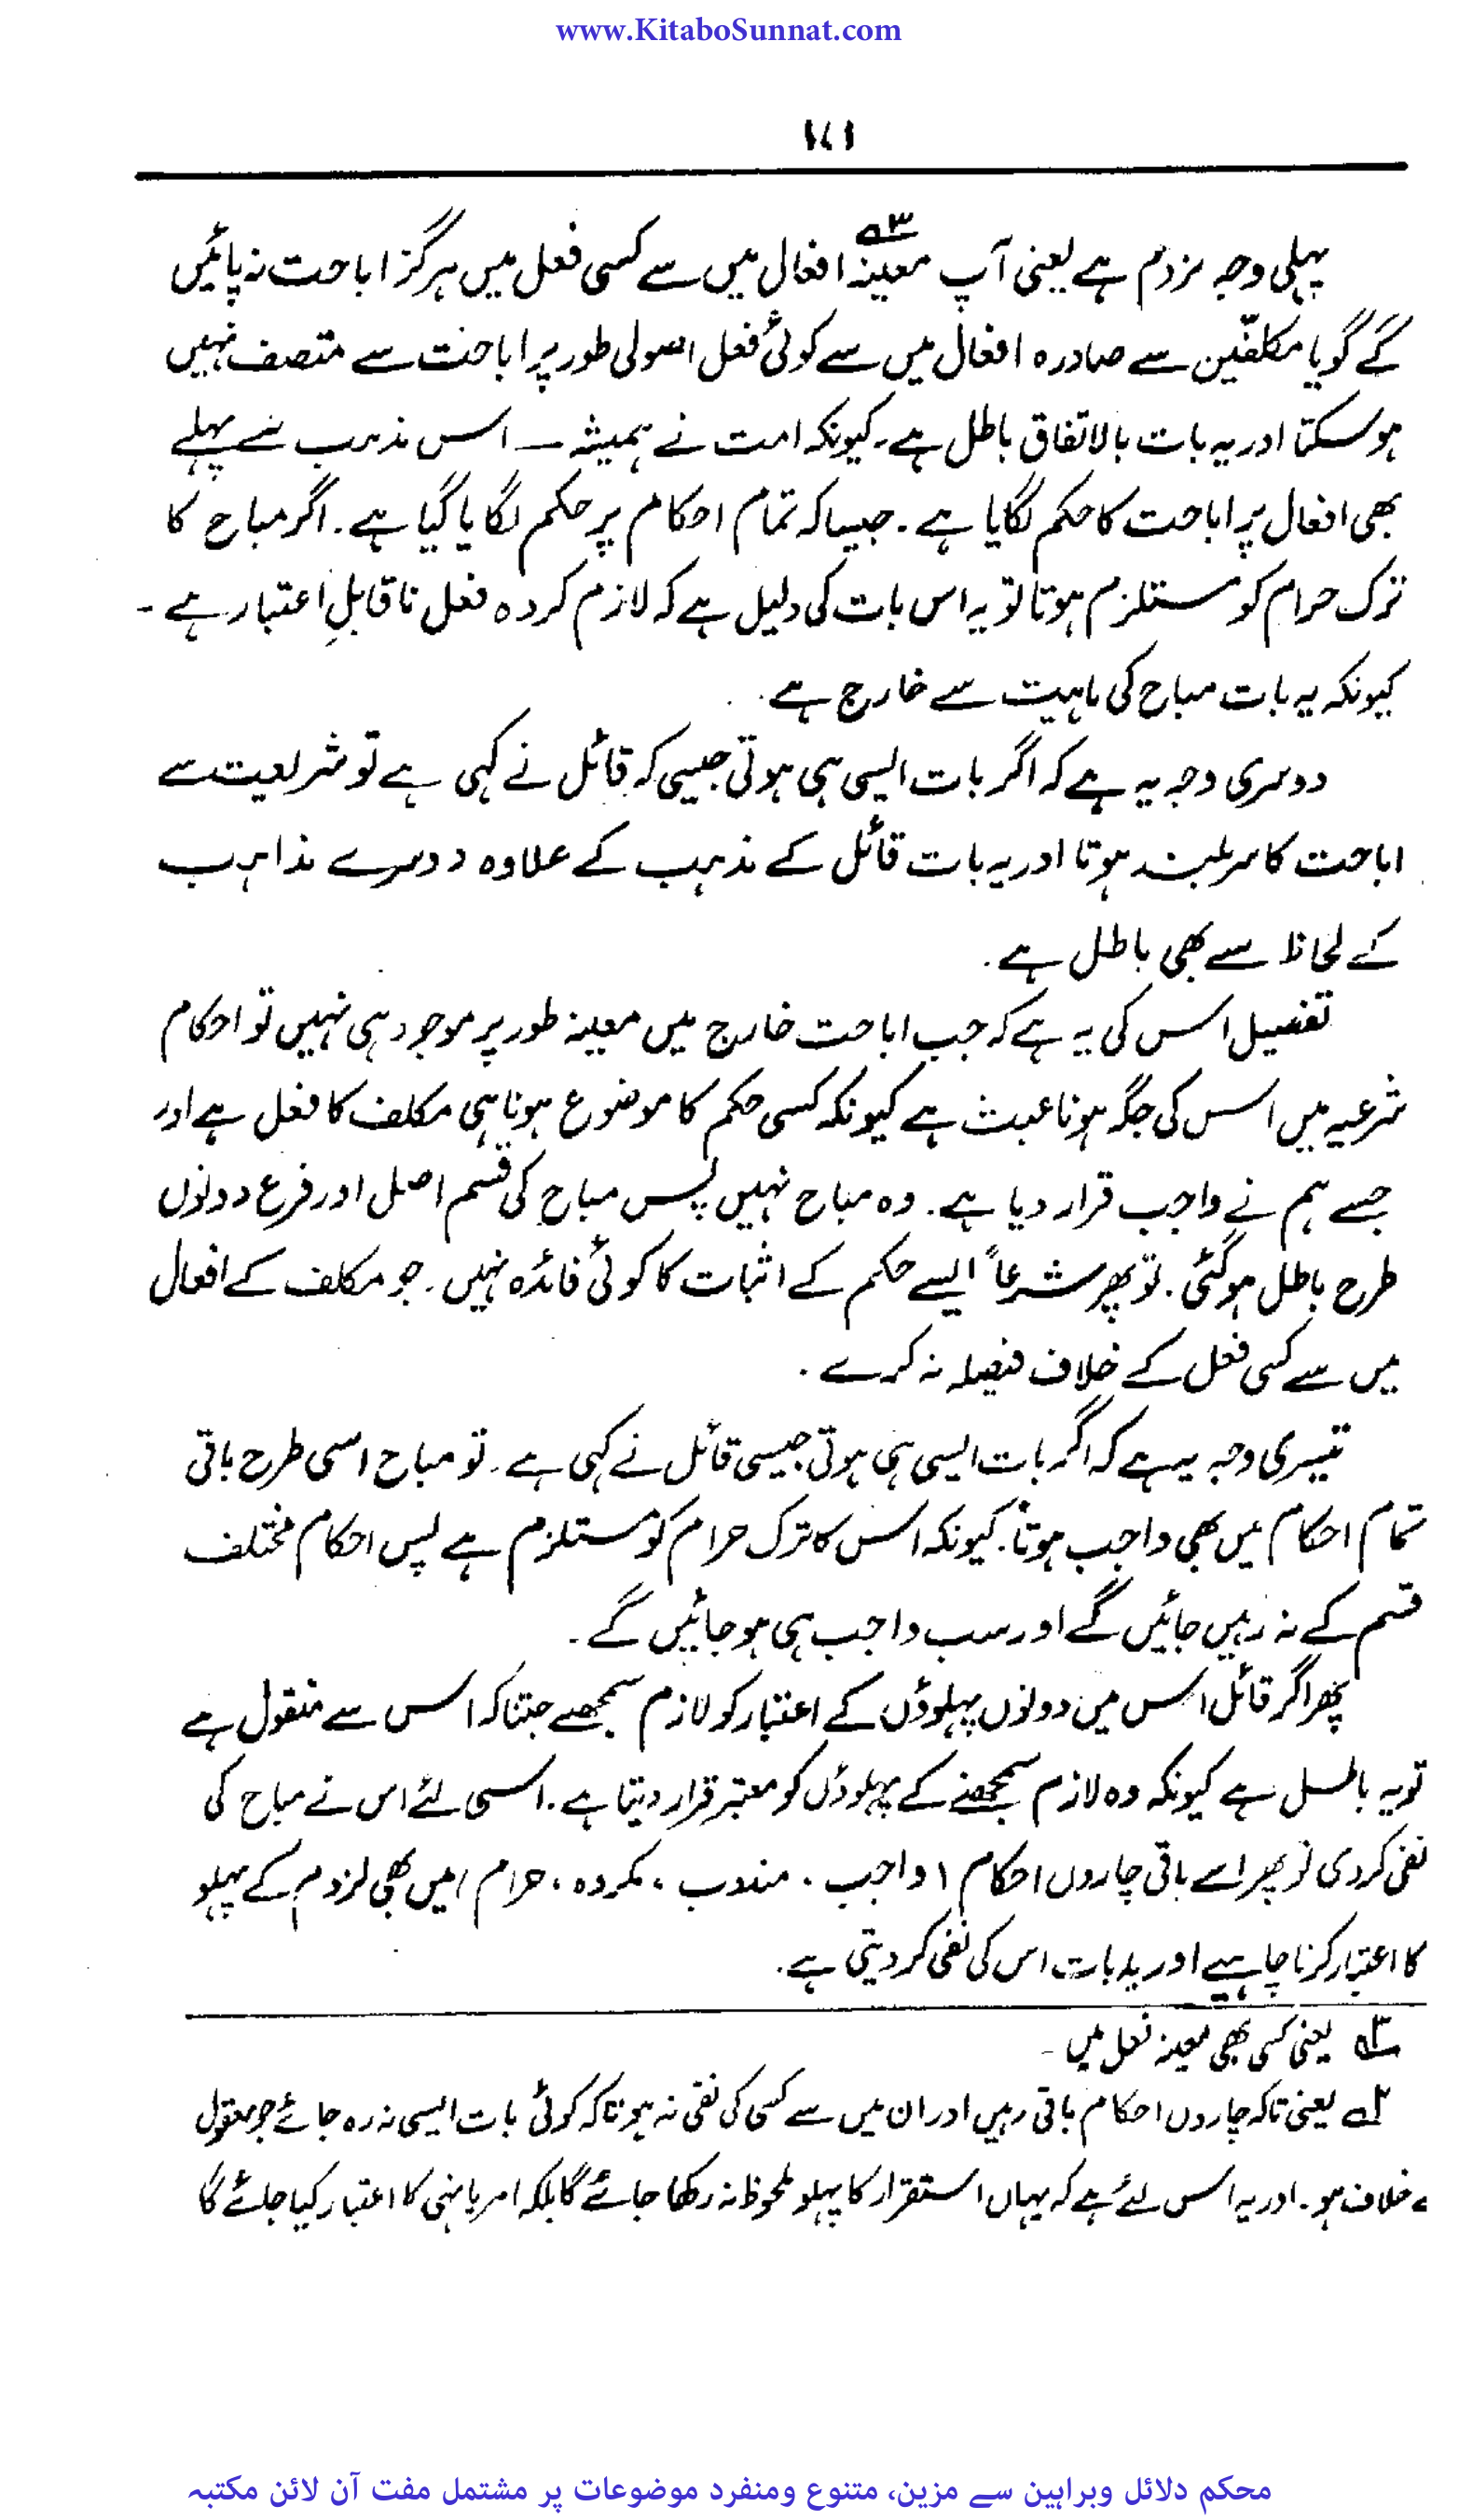 www.KitaboSunnat.com
۱۷۱
پہلی وجہ لزوم ہے یعنی آپ معینہ۳ افعال میں سے کسی فعل میں ہرگز اباحت نہ پائیں
گے گویا مکلفّین سے صادرہ افعال میں سے کوئی فعل اصولی طور پر اباحت سے متصف نہیں
ہوسکتا اور یہ بات بالاتفاق باطل ہے۔ کیونکہ امت نے ہمیشہ ــ اس مذہب سے پہلے
بھی افعال پر اباحت کا حکم لگایا ہے۔ جیسا کہ تمام احکام پر حکم لگایا گیا ہے۔ اگر مباح کا
ترک حرام کو مستلزم ہوتا تو یہ اس بات کی دلیل ہے کہ لازم کردہ فعل ناقابلِ اعتبار ہے ۔
کیونکہ یہ بات مباح کی ماہیت سے خارج ہے۔
دوسری وجہ یہ ہے کہ اگر بات ایسی ہی ہوتی جیسی کہ قائل نے کہی ہے تو شریعت سے
اباحت کا سر بلند ہوتا اور یہ بات قائل کے مذہب کے علاوہ دوسرے مذاہب
کے لحاظ سے بھی باطل ہے۔
تفصیل اس کی یہ ہے کہ جب اباحت خارج میں معینہ طور پر موجود ہی نہیں تو احکام
شرعیہ میں اس کی جگہ ہونا عبث ہے کیونکہ کسی حکم کا موضوع ہونا ہی مکلف کا فعل ہے اور
جسے ہم نے واجب قرار دیا ہے۔ وہ مباح نہیں پس مباح کی قسم اصل اور فرع دونوں
طرح باطل ہوگئی۔ تو پھر شرعاً ایسے حکم کے اثبات کا کوئی فائدہ نہیں۔ جو مکلف کے افعال
میں سے کسی فعل کے خلاف فیصلہ نہ کرے۔
تیسری وجہ یہ ہے کہ اگر بات ایسی ہی ہوتی جیسی قائل نے کہی ہے۔ تو مباح اسی طرح باقی
تمام احکام میں بھی واجب ہوتا۔ کیونکہ اس کا ترک حرام کو مستلزم ہے پس احکام مختلف
قسم کے نہ رہیں جائیں گے اور سب واجب ہی ہو جائیں گے۔
پھر اگر قائل اس میں دونوں پہلوؤں کے اعتبار کو لازم سمجھے جتنا کہ اس سے منقول ہے
تو یہ باطل ہے کیونکہ وہ لازم سمجھنے کے پہلوؤں کو معتبر قرار دیتا ہے۔ اسی لئے اس نے مباح کی
نفی کردی تو پھر اسے باقی چاروں احکام (واجب ، مندوب ، مکروہ ، حرام) میں بھی لزوم کے پہلو
کا اعتبار کرنا چاہیے اور یہ بات اس کی نفی کر دیتی ہے۔
۳ یعنی کسی بھی معینہ فعل میں ۔
یعنی تاکہ چاروں احکام باقی رہیں اور ان میں سے کسی کی نفی نہ ہو تاکہ کوئی بات ایسی نہ رہ جائے جو معقول
خلاف ہو۔ اور یہ اس لئے ہے کہ یہاں استقرار کا پہلو ملحوظ نہ رکھا جائے گا بلکہ امر یا نہی کا اعتبار کیا جائے گا
محکم دلائل وبراہین سے مزین، متنوع ومنفرد موضوعات پر مشتمل مفت آن لائن مکتبہ